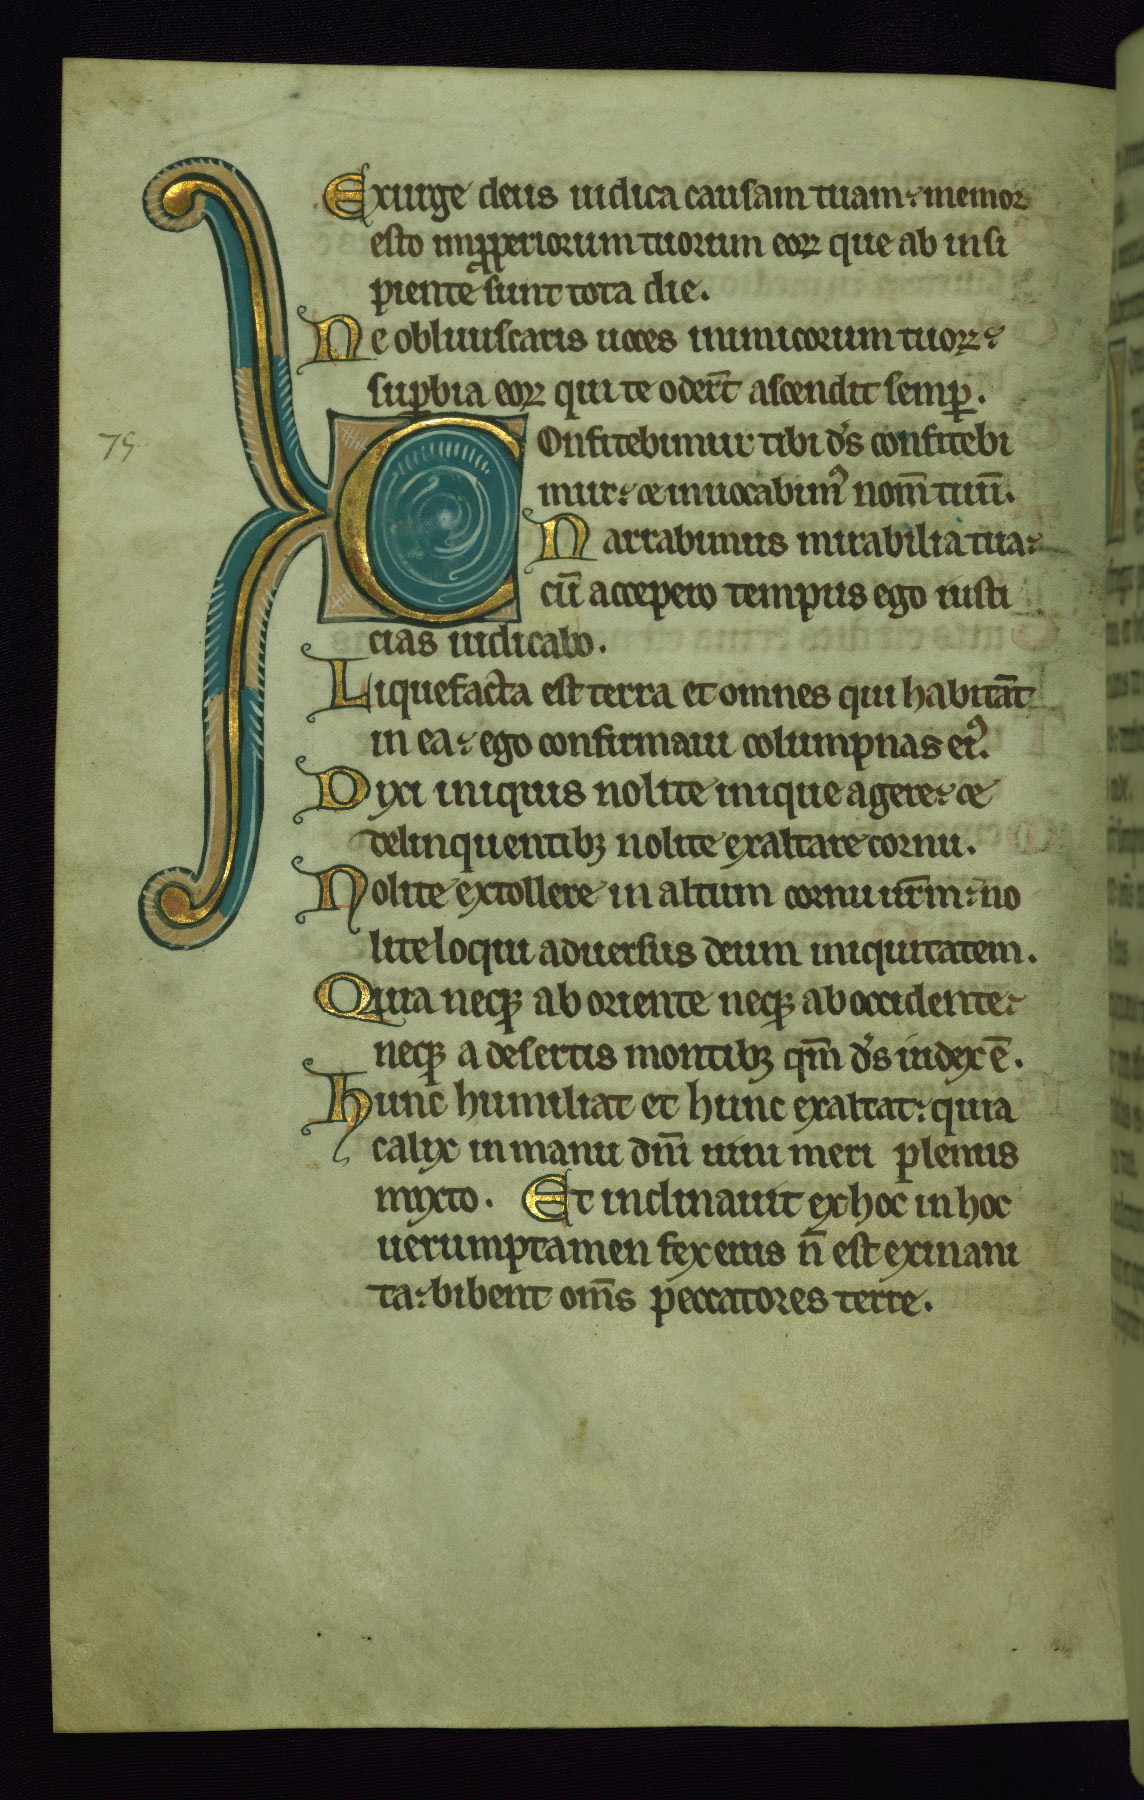 Exurge deus iudica causam tuam: memor
esto inproperiorum tuorum eorꝝ que ab insi
piente sunt tota die.
Ne obliuiscaris uoces inimicorum tuoꝝ:
suꝑbia eoꝝ qui te oder̄t ascendit semꝑ.
75
Confitebimur tibi d̄s confitebi
mur: et inuocabimꝰ nom̄ tuū.
Narrabimus mirabilia tua:
cū accepero tempus ego iusti
cias iudicabo.
Liquefacta est terra et omnes qui habitāt
in ea: ego confirmaui columpnas eiꝰ.
Dixi iniquis nolite inique agere: et
delinquentibꝫ nolite exaltare cornu.
Nolite extollere in altum cornu ur̄m: no
lite loqui aduersus deum iniquitatem.
Quia neqꝫ ab oriente neqꝫ ab occidente:
neqꝫ a desertis montibꝫ qm̄ d̄s iudex ē.
Hunc humiliat et hunc exaltat: quia
calix in manu dn̄i uini meri plenus
mixto. Et inclinauit ex hoc in hoc
uerumptamen fex eius n̄ est exinani
ta: bibent om̄s peccatores terre.